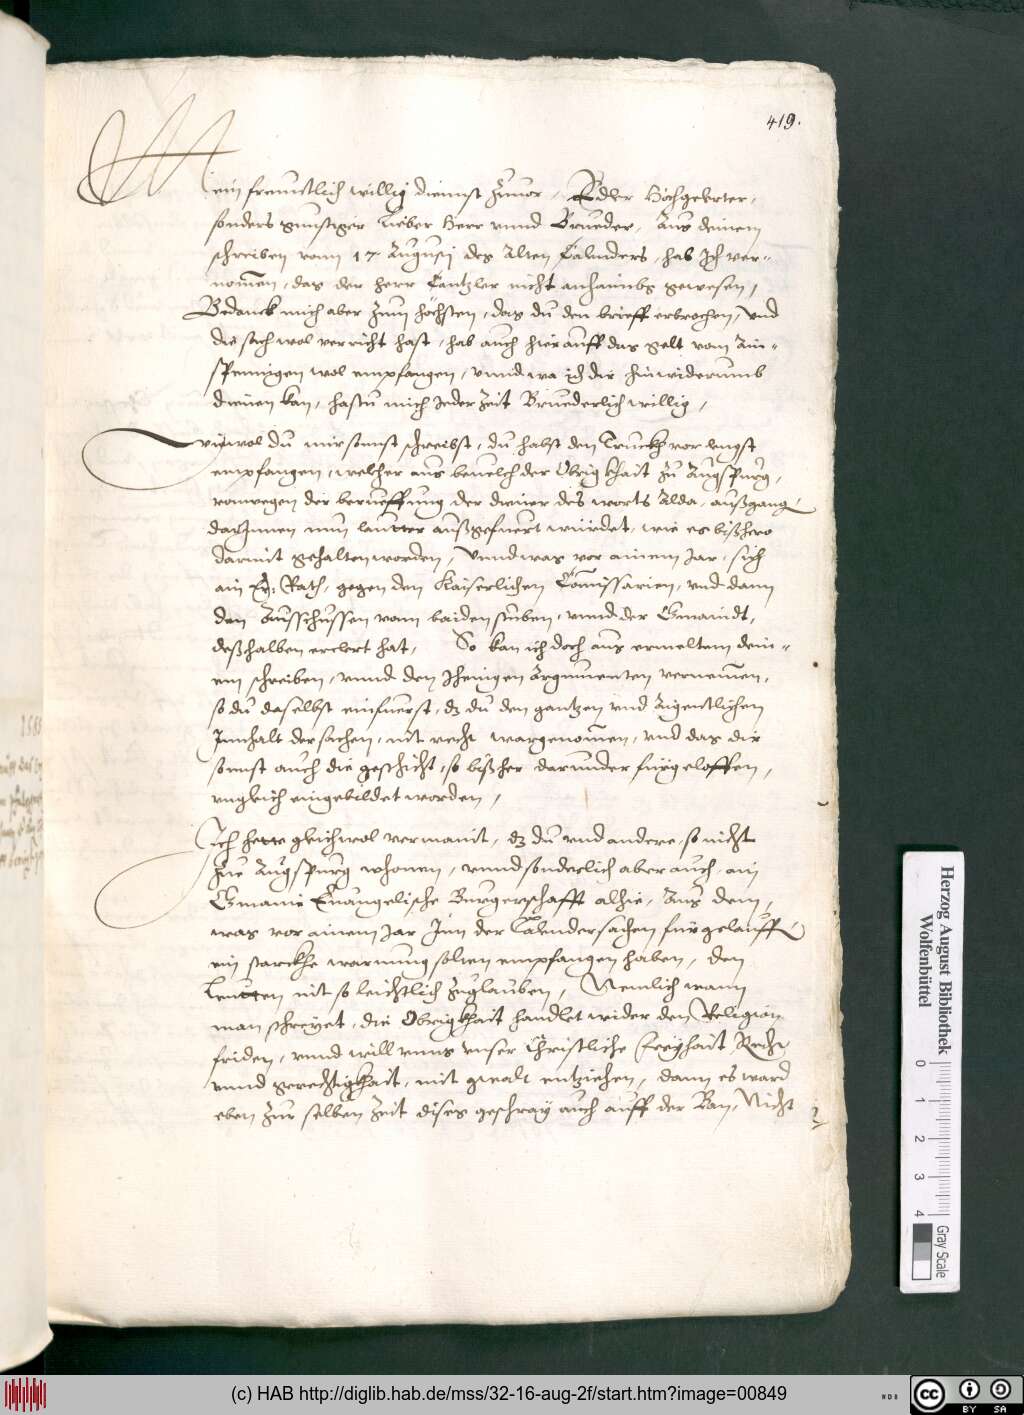 419.
Mein freuntlich willig diennst zuuor, Edler Hochgeerter,
sonders gunstiger Lieber Herr vnnd Brueder, Aus deinem
schreiben vom 17. Augusti des Alten Calenders, hab Ich ver-
nommen, das der herr Cantzler nicht anhaimbs gewesen,
Bedanck mich aber zum höchsten, das du den brieff erbrochen, vnd
die sach wol verricht hast, hab auch hierauff das gelt vom Ain-
spennigen wol empfangen, vnnd wa ich dir hinwiderumb
dienen kan, hastu mich Jeder Zeit Bruederlich willig,
Wiewol du mir sonnst schreibst, du habst den Truckh vor lengst
empfangen, welcher aus beuelch der Obrigkhait zu Augspurg,
vonwegen der berueffung der diener des worts Alda, außgang
darInnen nun lautter außgefuert würdet, wie es bißhero
darmit gehalten worden, Vnnd was vor ainem Jar, sich
ain Er: Rath, gegen den Kaiserlichen Comissarien, vnd dann
den Ausschussen vom baiden stuben, vnnd der Gmaindt,
deßhalben erclert hat, So kan ich doch aus ermeltem dein-
em schreiben, vnnd den Jhenigen Argumenten vernemen,
so du daselbst einfuerst, dz du den gantzen vnd Aigentlichen
Innhalt der sachen, nit recht wargenommen, vnd das dir
sonnst auch die geschicht, so bißher darunder fürgeloffen,
vngleich eingebildet worden,
Ich hette gleichwol vermaint, dz du vnd andere, so nicht
zue Augspurg whonen, vnnd sonderlich aber auch, ain
Gmaine Euangelische Burgerschafft alhie, Aus dem,
was vor ainem Jar Inn der Calendersachen fürgelauff
ein starckhe warnung solten empfangen haben, den
Leutten nit so leichtlich zuglauben, Nemlich wann
man schreyet, die Obrigkhait handlet wider den Religion
friden, vnnd will vnns vnser Christliche Freyhait, Recht
vnnd gerechtigkhait, mit gwalt entziehen, dann es ward
eben zur selben Zeit dises geschray auch auff der Ban, Nicht
Herzog August Bibliothek
Wolfenbüttel
0 1 2 3 4
Gray Scale
(c) HAB http://diglib.hab.de/mss/32-16-aug-2f/start.htm?image=00849
WDB
cc BY SA